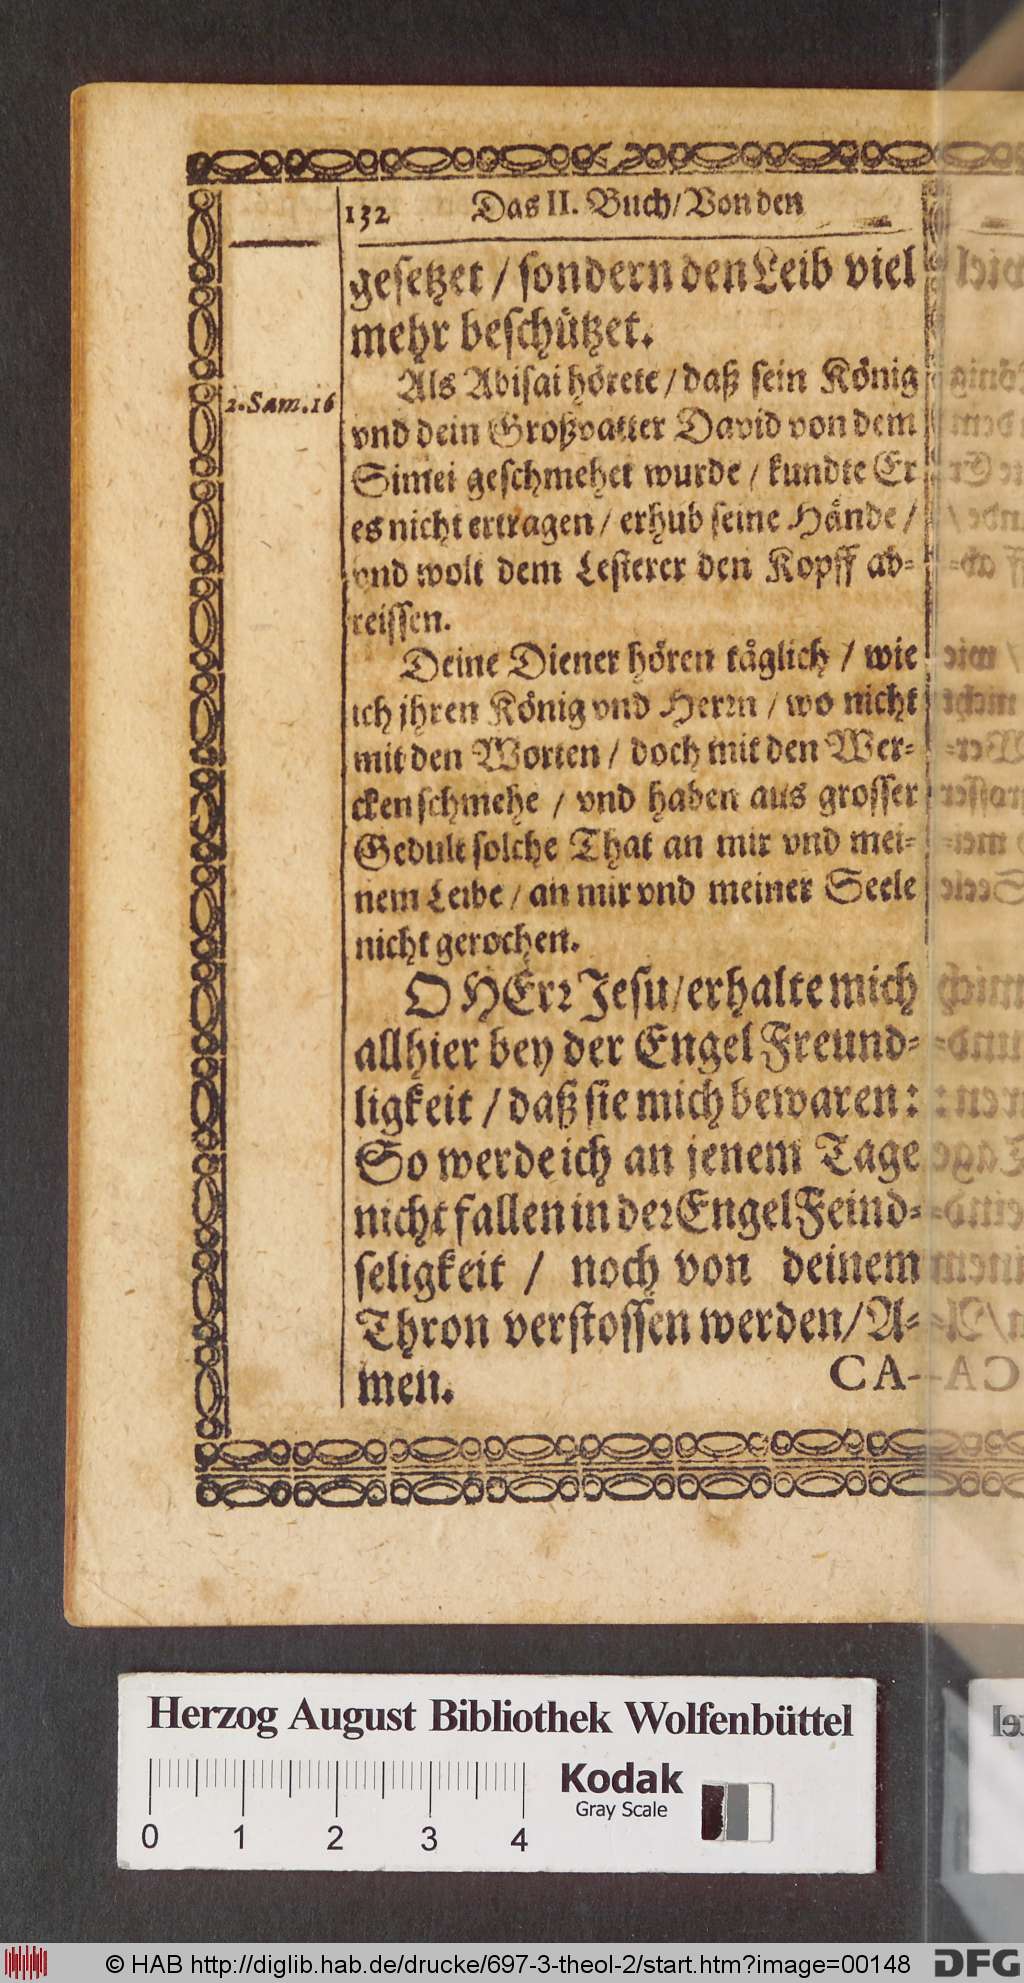 132 Das II. Buch/Von den
gesetzet / sondern den Leib viel
mehr beschützet.
Als Abisai hörete/daß sein König
2. Sam. 16
vnd dein Großvatter David von dem
Simei geschmehet wurde / kundte Er
es nicht ertragen/ erhub seine Hände/
vnd wolt dem Lesterer den Kopff ab-
reissen.
Deine Diener hören täglich / wie
ich jhren König vnd Herrn / wo nicht
mit den Worten / doch mit den Wer-
cken schmehe / vnd haben aus grosser
Gedult solche That an mir vnd mei-
nem Leibe / an mir vnd meiner Seele
nicht gerochen.
O HErr Jesu/erhalte mich
allhier bey der Engel Freund-
ligkeit / daß sie mich bewaren:
So werde ich an jenem Tage
nicht fallen in der Engel Feind-
seligkeit / noch von deinem
Thron verstossen werden/A-
men.
CA-
Herzog August Bibliothek Wolfenbüttel
Kodak
Gray Scale
0 1 2 3 4
© HAB http://diglib.hab.de/drucke/697-3-theol-2/start.htm?image=00148
DFG